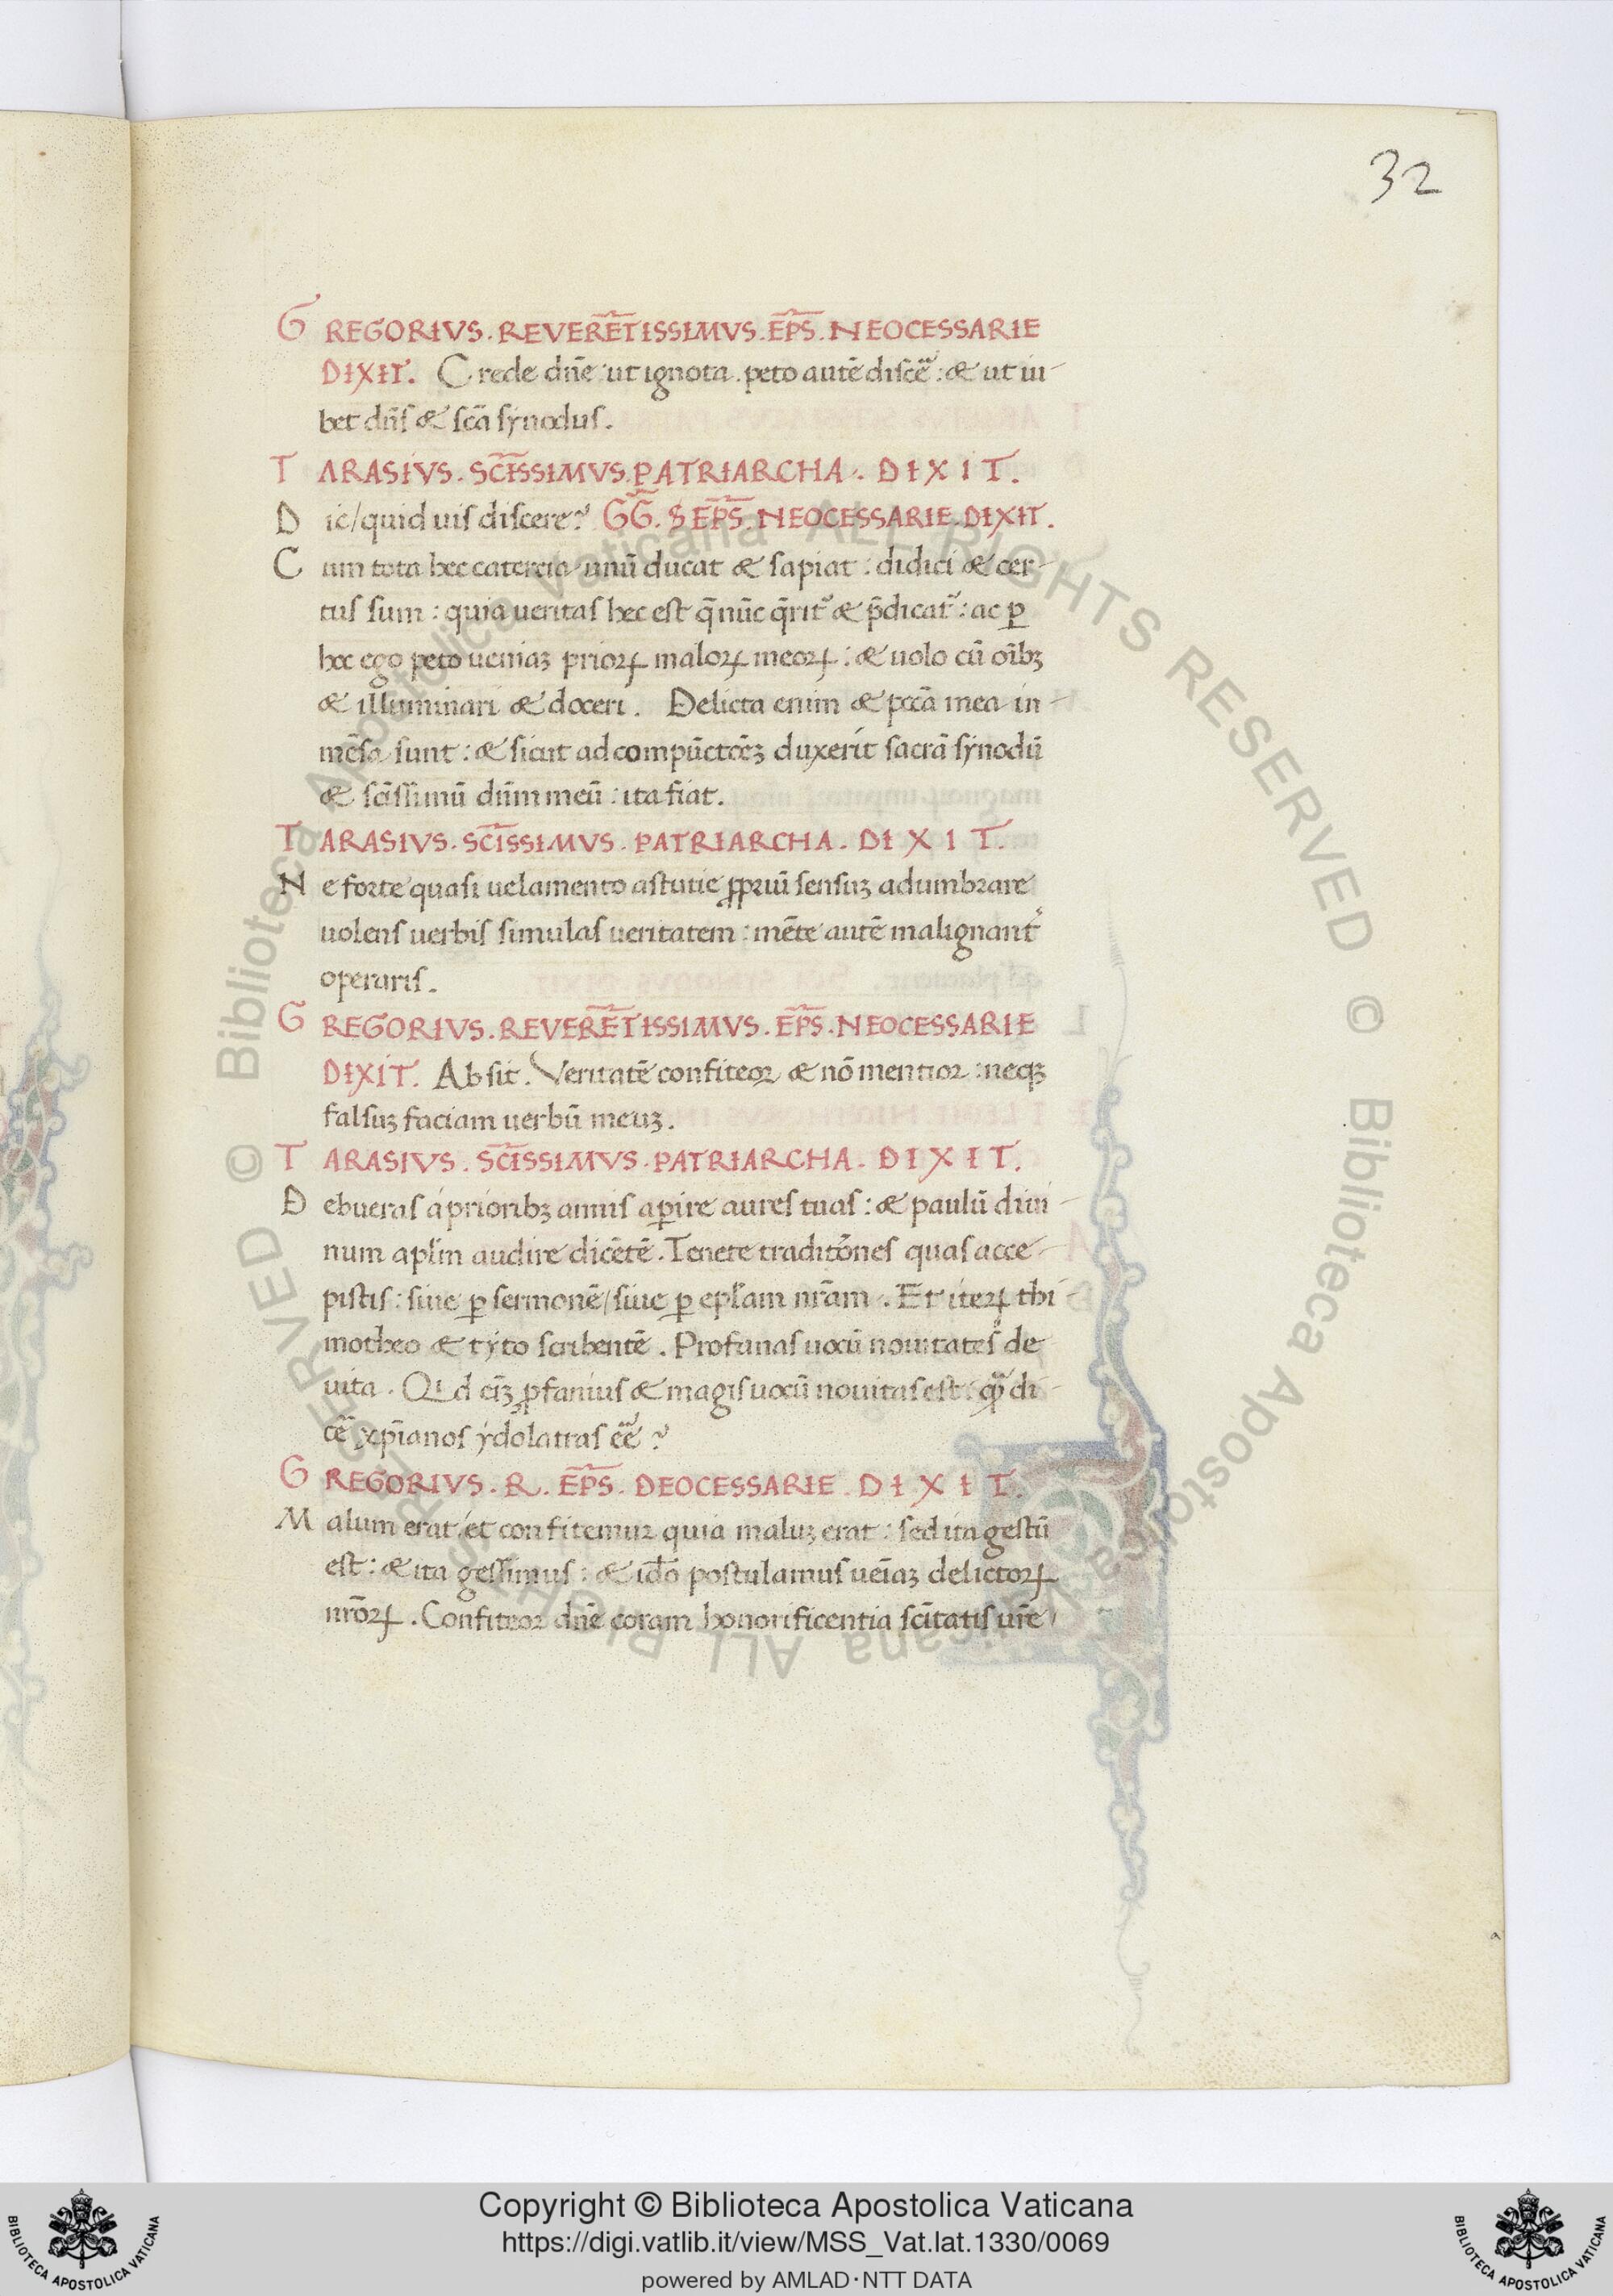 32
GREGORIVS. REVERĒTISSIMVS. EP̄S. NEOCESSARIE
DIXIT. Crede dn̄e ut ignota. peto autē discē: & ut iu-
bet dn̄s & scā synodus.
TARASIVS. SC̄ISSIMVS. PATRIARCHA. DIXIT.
Dic/quid uis discere? GḠ. S EP̄S. NEOCESSARIE. DIXIT.
Cum tota hec caterua unū ducat & sapiat: didici & cer-
tus sum: quia ueritas hec est q̄ nūc q̄rit᷑ & p̄dicat᷑: ac ꝑ
hoc ego peto ueniaꝫ prioꝝ maloꝝ meoꝝ: & uolo cū oībꝫ
& illuminari & doceri. Delicta enim & pccā mea in-
mēsa sunt: & sicut ad compūctōēꝫ duxerit sacrā synodū
& scīssimū dn̄m meū: ita fiat.
TARASIVS. SC̄ISSIMVS. PATRIARCHA. DIXIT.
Ne forte quasi uelamento astutie ꝓpriū sensuꝫ adumbrare
uolens uerbis simulas ueritatem: mēte autē malignant᷑
operaris.
GREGORIVS. REVERĒTISSIMVS. EP̄S. NEOCESSARIE
DIXIT. Absit. Veritatē confiteor & nō mentior: neqꝫ
falsuꝫ faciam uerbū meuꝫ.
TARASIVS. SC̄ISSIMVS. PATRIARCHA. DIXIT.
Debueras á prioribꝫ annis aꝑire aures tuas: & paulū diui-
num aplm̄ audire dicētē. Tenete traditōnes quas acce-
pistis: siue ꝑ sermonē/siue ꝑ epl̄am nr̄am. Et iteꝝ thi
motheo & tyto scribentē. Profanas uocū nouitates de
uita. Qd eīꝫ ꝓfanius & magis uocū nouitas est: qꝫ di-
cē xp̄ianos ydolatras eē?
GREGORIVS. R. EP̄S. DEOCESSARIE. DIXIT.
Malum erat/et confitemur quia maluꝫ erat: sed ita gestū
est: & ita gessimus: & idō postulamus ueīaꝫ delictoꝝ
nrōꝝ. Confiteor dn̄e coram honorificentia scītatis ur̄e/
© Biblioteca Apostolica Vaticana ALL RIGHTS RESERVED © Biblioteca Apostolica Vaticana ALL RIGHTS RESERVED
BIBLIOTECA APOSTOLICA VATICANA
Copyright © Biblioteca Apostolica Vaticana
https://digi.vatlib.it/view/MSS_Vat.lat.1330/0069
powered by AMLAD·NTT DATA
BIBLIOTECA APOSTOLICA VATICANA